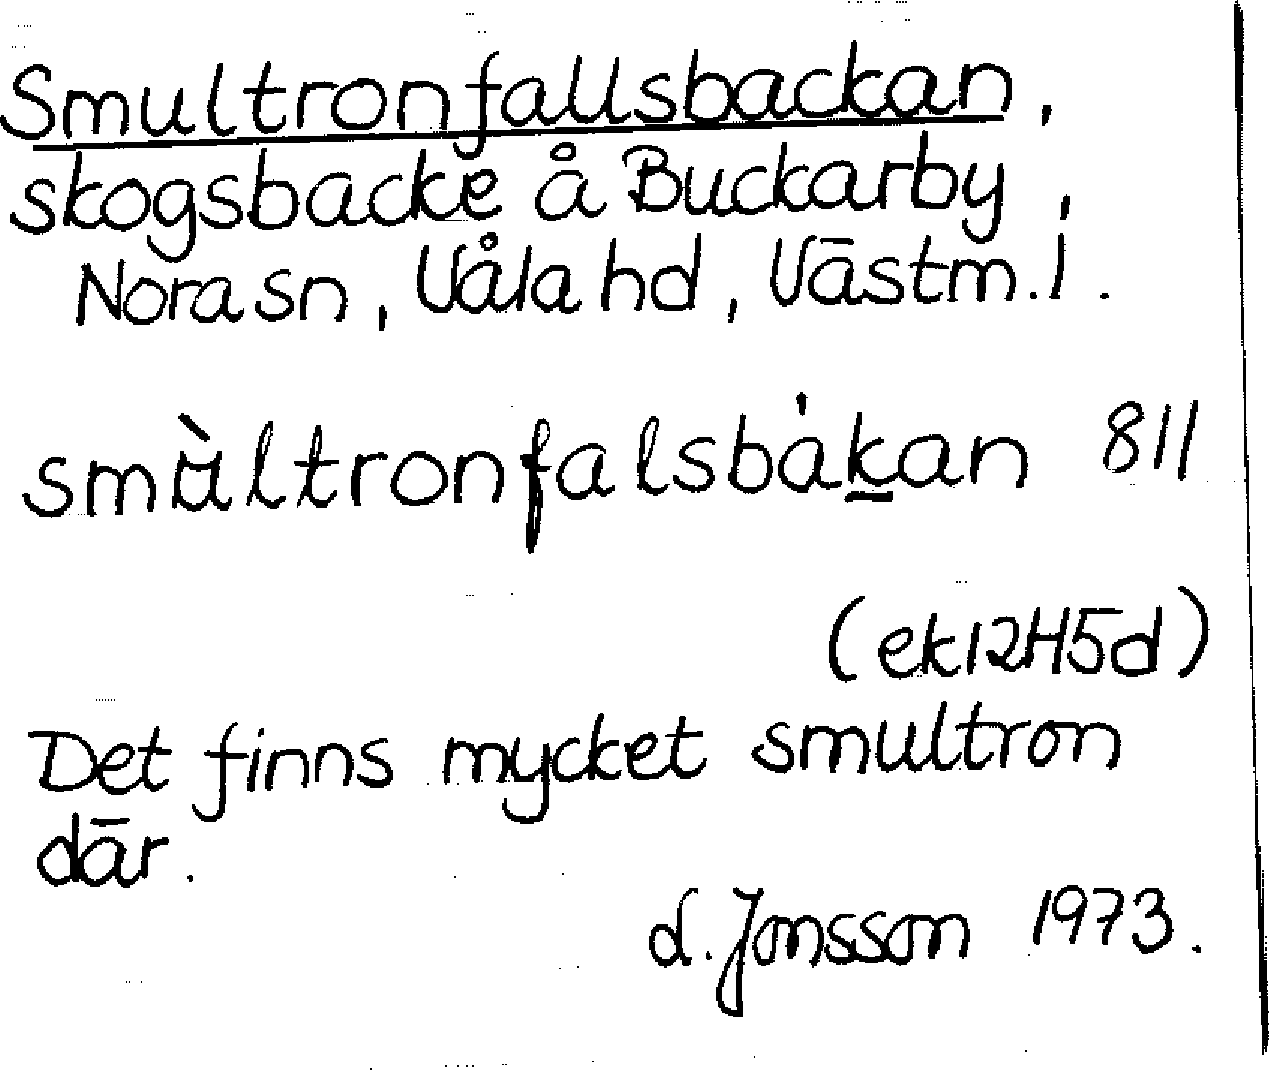 Smultronfallsbackan,
skogsbacke å Buckarby,
Nora sn, Våla hd, Västm. l.
smùltronfalsbàk̲an 811
(ek 12H5d)
Det finns mycket smultron
där.
d. Jonsson 1973.